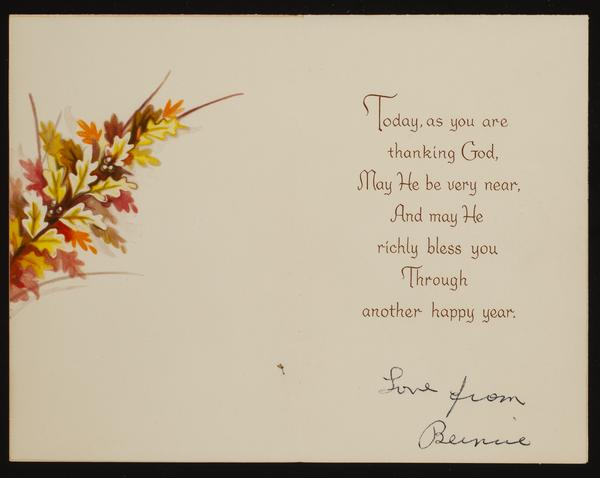 Today, as you are
thanking God,
May He be very near,
And may He
richly bless you
Through
another happy year.
Love from
Bernie